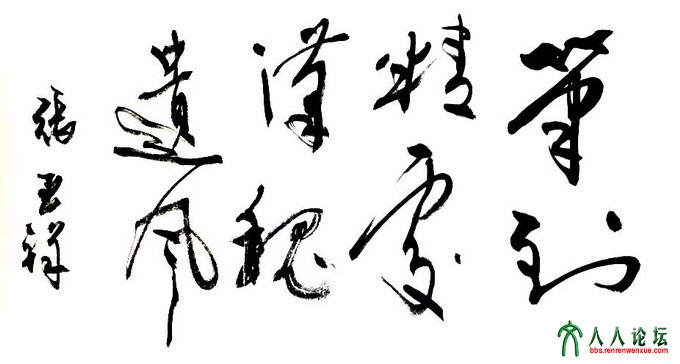 筆到
精處
漢魏
遺風
張玉祥
人人论坛
bbs.renrenwenxue.com